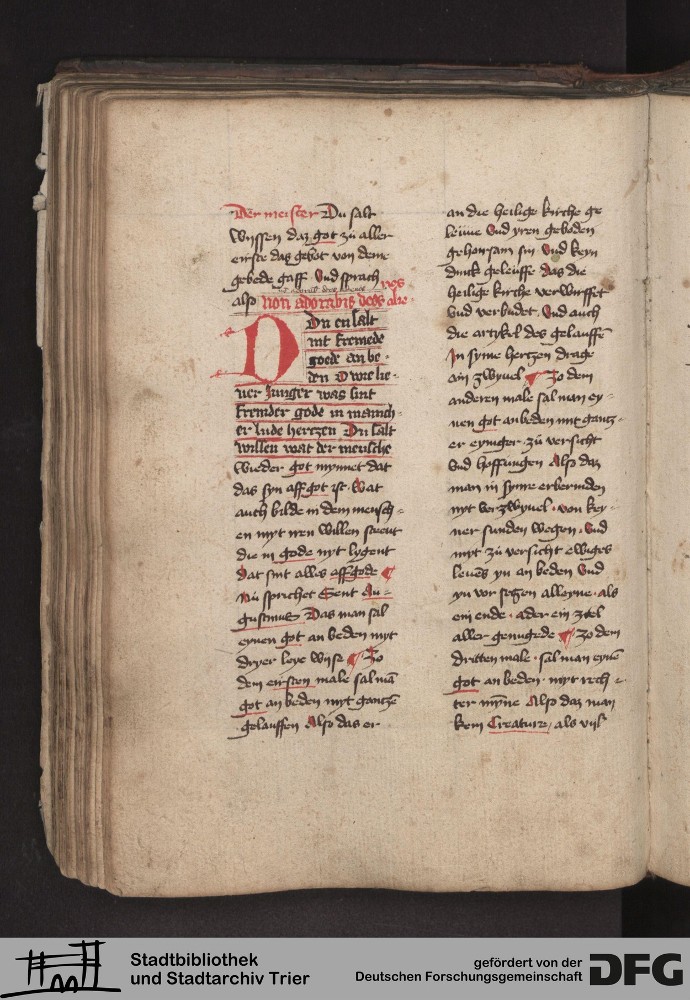 Der meister Du salt
wijssen daz got zü aller
eirste das gebot von deme
gebede gaff Vnd sprach
also Non adorabis deos alie
nos
DU en salt
nit fremede
goede an be
den O wie lie
uer Junger was sint
fremder gode in manich
er lude hertzen Du salt
willen wat der mensche
wieder got mynnet dat
das syn affgot ist Wat
auch bilde in dem mensch
en myt iren willen steent
die in gode nyt lygent
dat sint alles affgode
Nü sprichet Sent Au
gustinus Das man sal
eynen got an beden myt
dryer leye wijse Zo
dem eirsten male sal mā
got an beden myt gantzē
gelauffen Also das er
an die heilige kirche ge
leuue Vnd yren geboden
gehorsam sin Vnd keyn
dinck geleuffe das die
heilige kirche verwirffet
Vnd verbudet Vnd auch
die artykel des gelauffē
In syme hertzen drage
ain zwyuel Zo dem
anderen male sal man ey
nen got an beden mit gantz
er eyniger zü versicht
Vnd hoffungen Also daz
man in syme erbermden
nyt verzwyuel von key
ner sunden wegen Vnd
myt zü versicht ewiges
leuēs yn an beden Vnd
yn vor setzen alleyne als
ein ende ader ein zeel
aller genugede Zo dem
dritten male sal man eynē
got an beden myt rech
ter mȳne Also daz man
kein Creature als vil
Stadtbibliothek
und Stadtarchiv Trier
gefördert von der
Deutschen Forschungsgemeinschaft
DFG